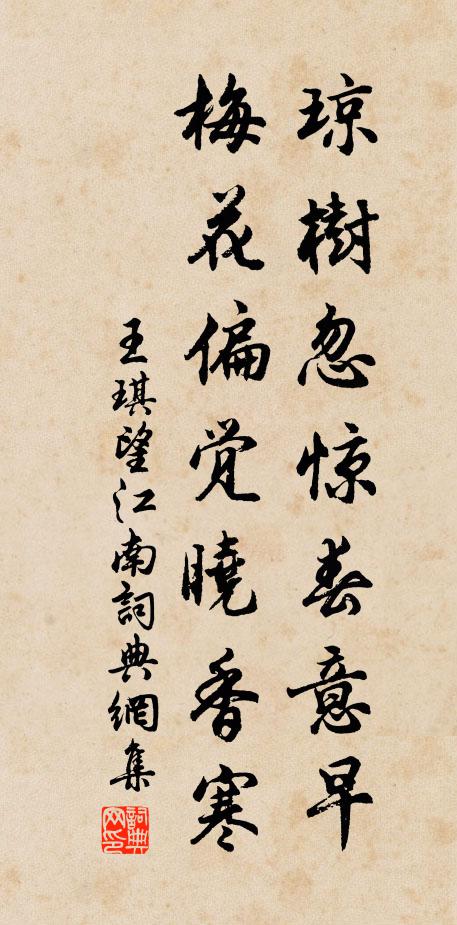 琼樹忽惊春意早
梅花偏觉曉香寒
王琪望江南詞典網集
詞典网印